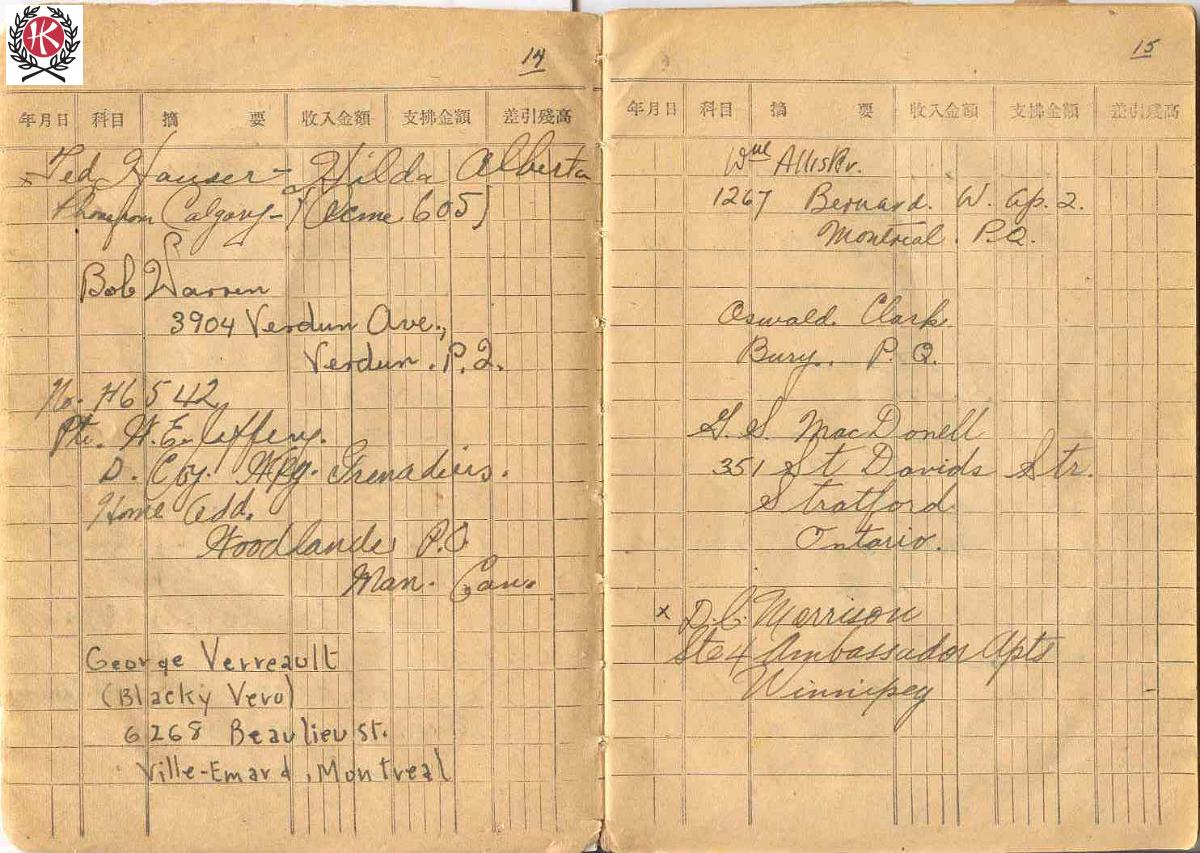 HK
14
年月日 科目 摘 要 收入金額 支拂金額 差引殘高
x Ted Hauser - Hilda Alberta
Phone from Calgary - (Acme 605)
Bob Warren
3904 Verdun Ave.,
Verdun. P.Q.
No. H6542
Pte. W.E. Jeffery.
D. Coy. Wpg. Grenadiers.
Home Add.
Woodlands P.O
Man. Can.
George Verreault
(Blacky Vero)
6268 Beaulieu st.
Ville-Emard, Montreal
15
年月日 科目 摘 要 收入金額 支拂金額 差引殘高
Wm Allister.
1267 Bernard. W. ap. 2.
Montreal. P.Q.
Oswald. Clark
Bury. P. Q.
G. S. MacDonell
351 St Davids Str.
Stratford
Ontario.
x D.C. Morrison
Ste 4 Ambassador Apts
Winnipeg